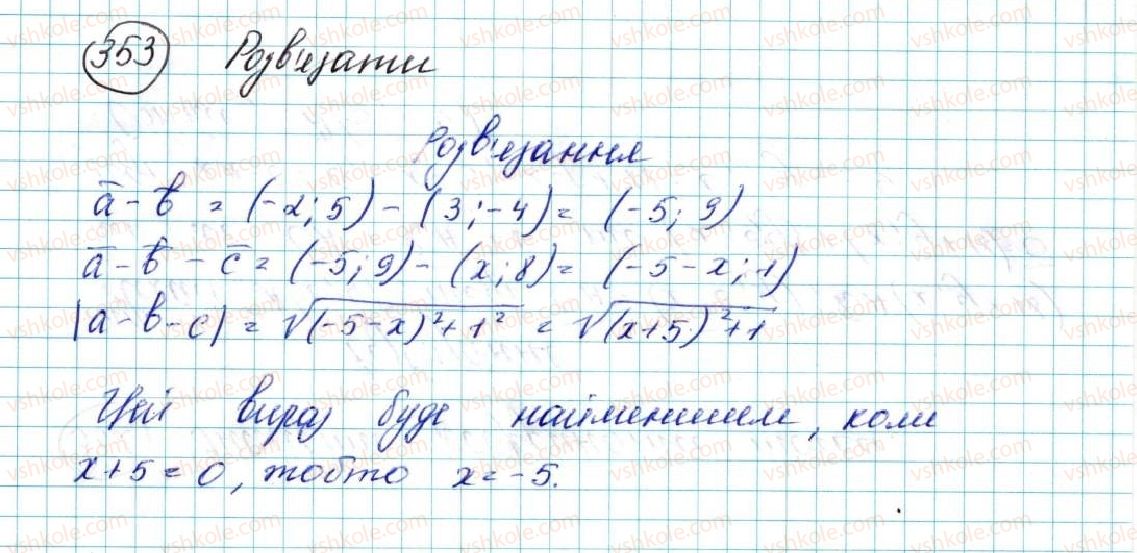 353 Розв'язати
Розв'язання
a̅ - b̅ = (-2; 5) - (3; -4) = (-5; 9)
a̅ - b̅ - c̅ = (-5; 9) - (x; 8) = (-5 - x; 1)
|a - b - c| = √((-5 - x)² + 1²) = √((x + 5)² + 1)
Цей вираз буде найменшим, коли
x + 5 = 0, тобто x = -5.
vshkole.com